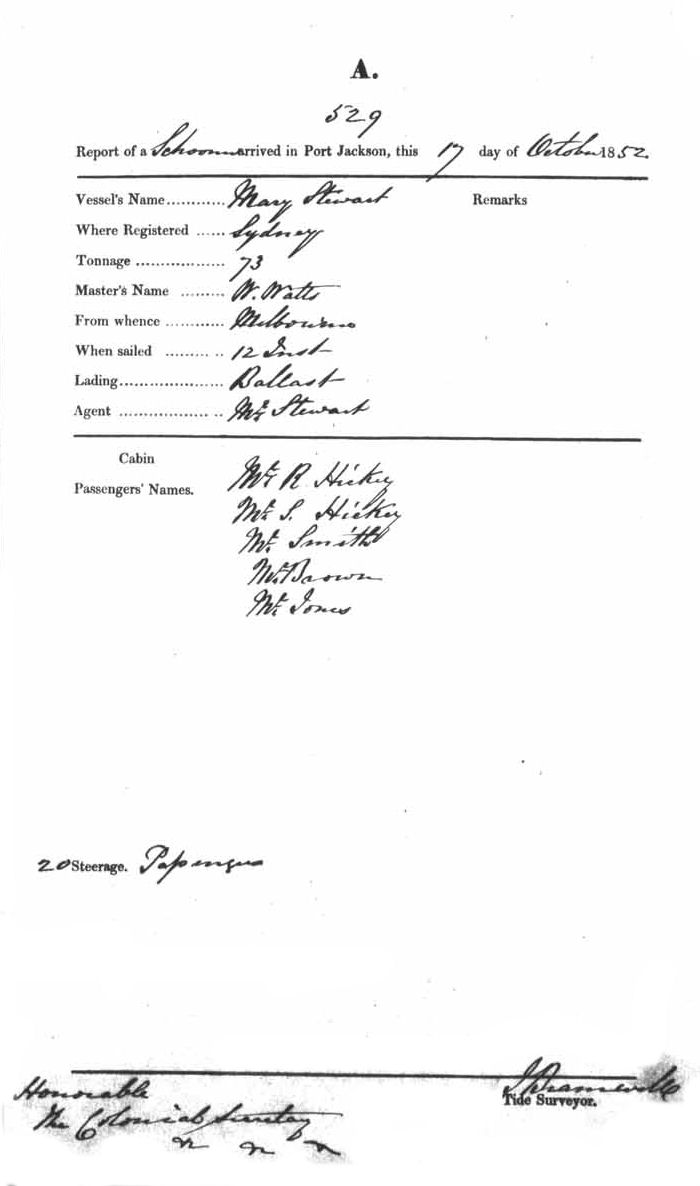 A.
529
Report of a Schooner arrived in Port Jackson, this 17 day of October 1852.
Vessel's Name ............ Mary Stewart
Remarks
Where Registered ...... Sydney
Tonnage .................. 73
Master's Name ......... W. Watts
From whence ............ Melbourne
When sailed ............ 12 Inst
Lading ..................... Ballast
Agent ..................... Mr Stewart
Cabin
Passengers' Names.
Mr R Hickey
Mr S. Hickey
Mr Smith
Mr Brown
Mr Jones
20 Steerage. Passengers
Tide Surveyor.
Honorable
The Colonial Secretary